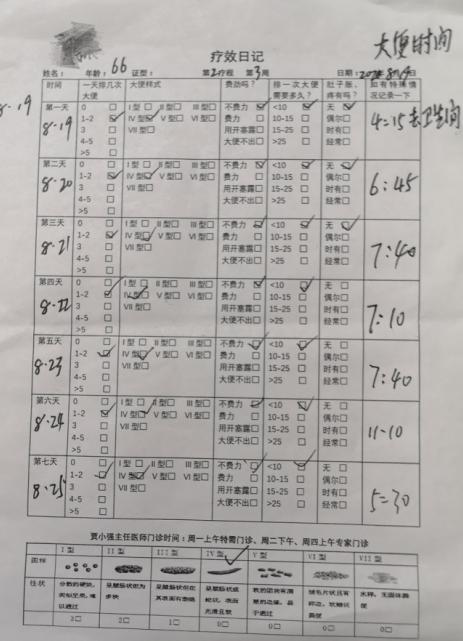 大便时间
疗效日记
姓名： 年龄：66 证型： 第2疗程 第3周 日期：
8.19
时间 一天排几次大便 大便样式 费劲吗？ 排一次大便需要多久？ 肚子胀、疼有吗？ 如有特殊情况记录一下
第一天 0 □ I型 □ II型□ III型□ 不费力☑ <10 ☑ 无 ☑ 4:15去卫生间
8.19 1-2 ☑ IV型☑ V型□ VI型□ 费力 □ 10-15 □ 偶尔□
3 □ VII型□ 用开塞露□ 15-25 □ 时有□
4-5 □ 大便不出□ >25 □ 经常□
>5 □
第二天 0 □ I型 □ II型□ III型□ 不费力☑ <10 ☑ 无 ☑ 6:45
8.20 1-2 ☑ IV型☑ V型□ VI型□ 费力 □ 10-15 □ 偶尔□
3 □ VII型□ 用开塞露□ 15-25 □ 时有□
4-5 □ 大便不出□ >25 □ 经常□
>5 □
第三天 0 □ I型 □ II型□ III型□ 不费力☑ <10 ☑ 无 ☑ 7:40
8.21 1-2 ☑ IV型☑ V型□ VI型□ 费力 □ 10-15 □ 偶尔□
3 □ VII型□ 用开塞露□ 15-25 □ 时有□
4-5 □ 大便不出□ >25 □ 经常□
>5 □
第四天 0 □ I型 □ II型□ III型□ 不费力☑ <10 ☑ 无 □ 7:10
8.22 1-2 ☑ IV型☑ V型□ VI型□ 费力 □ 10-15 □ 偶尔□
3 □ VII型□ 用开塞露□ 15-25 □ 时有□
4-5 □ 大便不出□ >25 □ 经常□
>5 □
第五天 0 □ I型 □ II型□ III型□ 不费力☑ <10 ☑ 无 □ 7:40
8.23 1-2 ☑ IV型☑ V型□ VI型□ 费力 □ 10-15 □ 偶尔□
3 □ VII型□ 用开塞露□ 15-25 □ 时有□
4-5 □ 大便不出□ >25 □ 经常□
>5 □
第六天 0 □ I型 □ II型□ III型□ 不费力☑ <10 ☑ 无 □ 11-10
8.24 1-2 ☑ IV型☑ V型□ VI型□ 费力 □ 10-15 □ 偶尔□
3 □ VII型□ 用开塞露□ 15-25 □ 时有□
4-5 □ 大便不出□ >25 □ 经常□
>5 □
第七天 0 □ I型 □ II型□ III型□ 不费力☑ <10 ☑ 无 □ 5:30
8.25 1-2 ☑ IV型☑ V型□ VI型□ 费力 □ 10-15 □ 偶尔□
3 □ VII型□ 用开塞露□ 15-25 □ 时有□
4-5 □ 大便不出□ >25 □ 经常□
>5 □
贾小强主任医师门诊时间：周一上午特需门诊、周二下午、周四上午专家门诊
I型 II型 III型 IV型 V型 VI型 VII型
图样
性状
3□ 2□ 1□ 0□ 0□ 0□ 0□